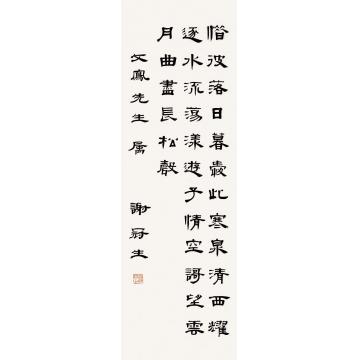 惜彼落日暮愛此寒泉清西耀
逐水流蕩漾遊子情空謌望雲
月曲盡長松聲
文鳳先生屬
謝冠生